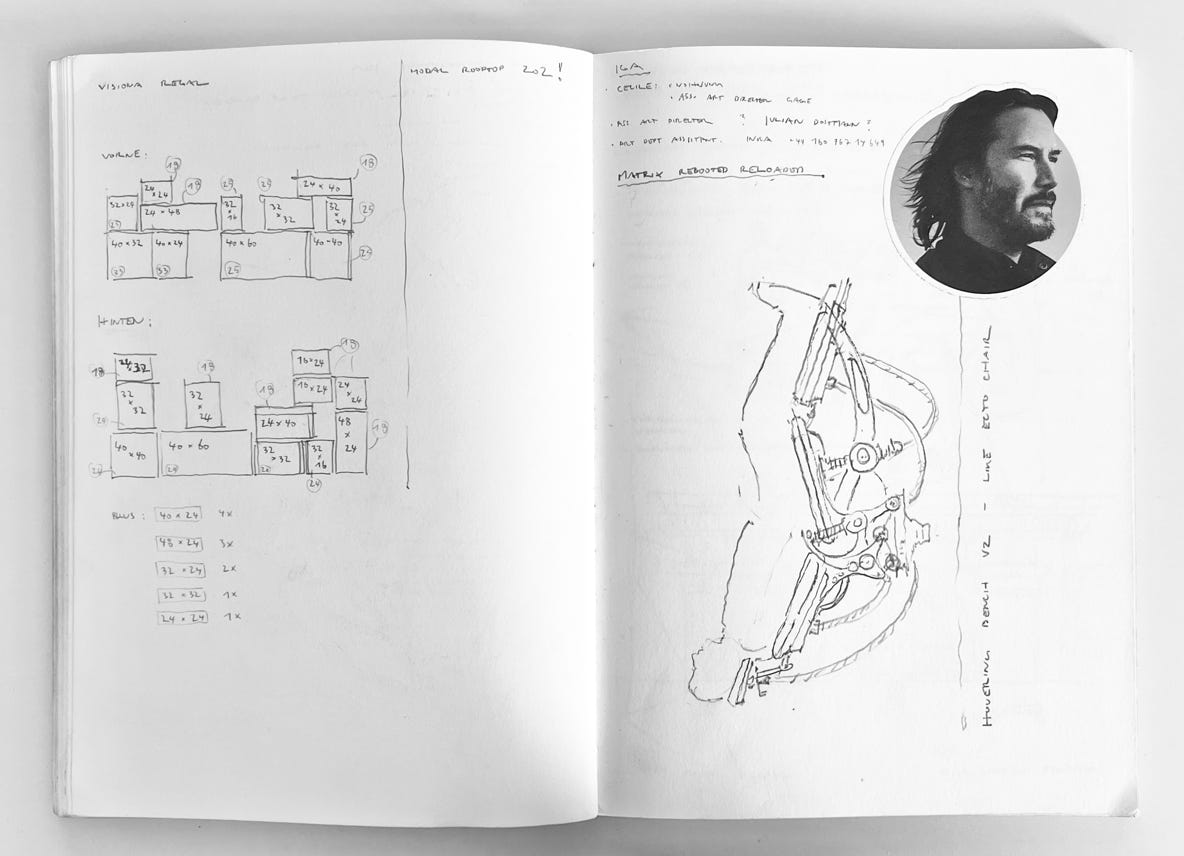 VISIONA REGAL
VORNE:
18
18
18
25
25
24 × 24
24 × 40
32 × 24
25
24 × 48
32 × 16
32 × 32
32 × 24
25
40 × 32
33
40 × 24
33
40 × 60
25
40 × 40
25
HINTEN:
18
24 × 32
18
18
16 × 24
18
32 × 32
32 × 24
16 × 24
24 × 24
24 × 40
48 × 24
18
40 × 40
40 × 60
24
32 × 32
32 × 16
24
40 × 24 4x
48 × 24 3x
32 × 24 2x
32 × 32 1x
24 × 24 1x
ROOFTOP 202!
· CECILE:
· ASS. ART DIRECTOR
· ASS ART DIRECTOR ? JULIAN ?
· ART DEPT ASSISTANT.
MATRIX REBOOTED RELOADED
HOVERING BENCH V2 - LIKE ECTO CHAIR